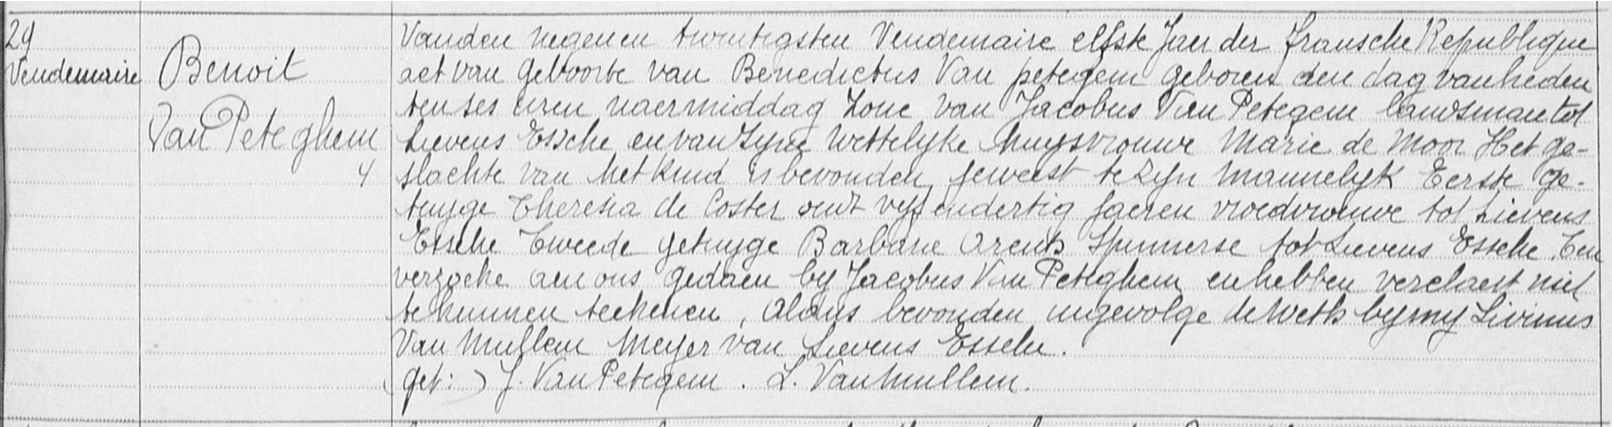 29
Vendemaire
Benoit
Van Peteghem
4
Vanden negenen twintigsten Vendemaire elfste Jaer der fransche Republique
act van geboorte van Benedictus Van petegem geboren den dag van heden
ten ses uren naermiddag zone van Jacobus Van Petegem landsman tot
Lievens Essche en van syne wettelyke huysvrouwe Marie de Moor Het ge-
slachte van het kind is bevonden geweest te zyn mannelyk Eerste ge-
tuyge Theresia de Coster oudt vyf en dertig jaeren vroedvrouwe tot Lievens
Essche Tweede getuyge Barbara Arents spinnerse tot Lievens Essche Ten
verzoeke aen ons gedaen by Jacobus Van Peteghem en hebben verclaert niet
te kunnen teekenen, Aldus bevonden ingevolge de Weth by my Livinus
Van Mullem Meyer van Lievens Essche.
(get:) J. Van Petegem. L. Van Mullem.